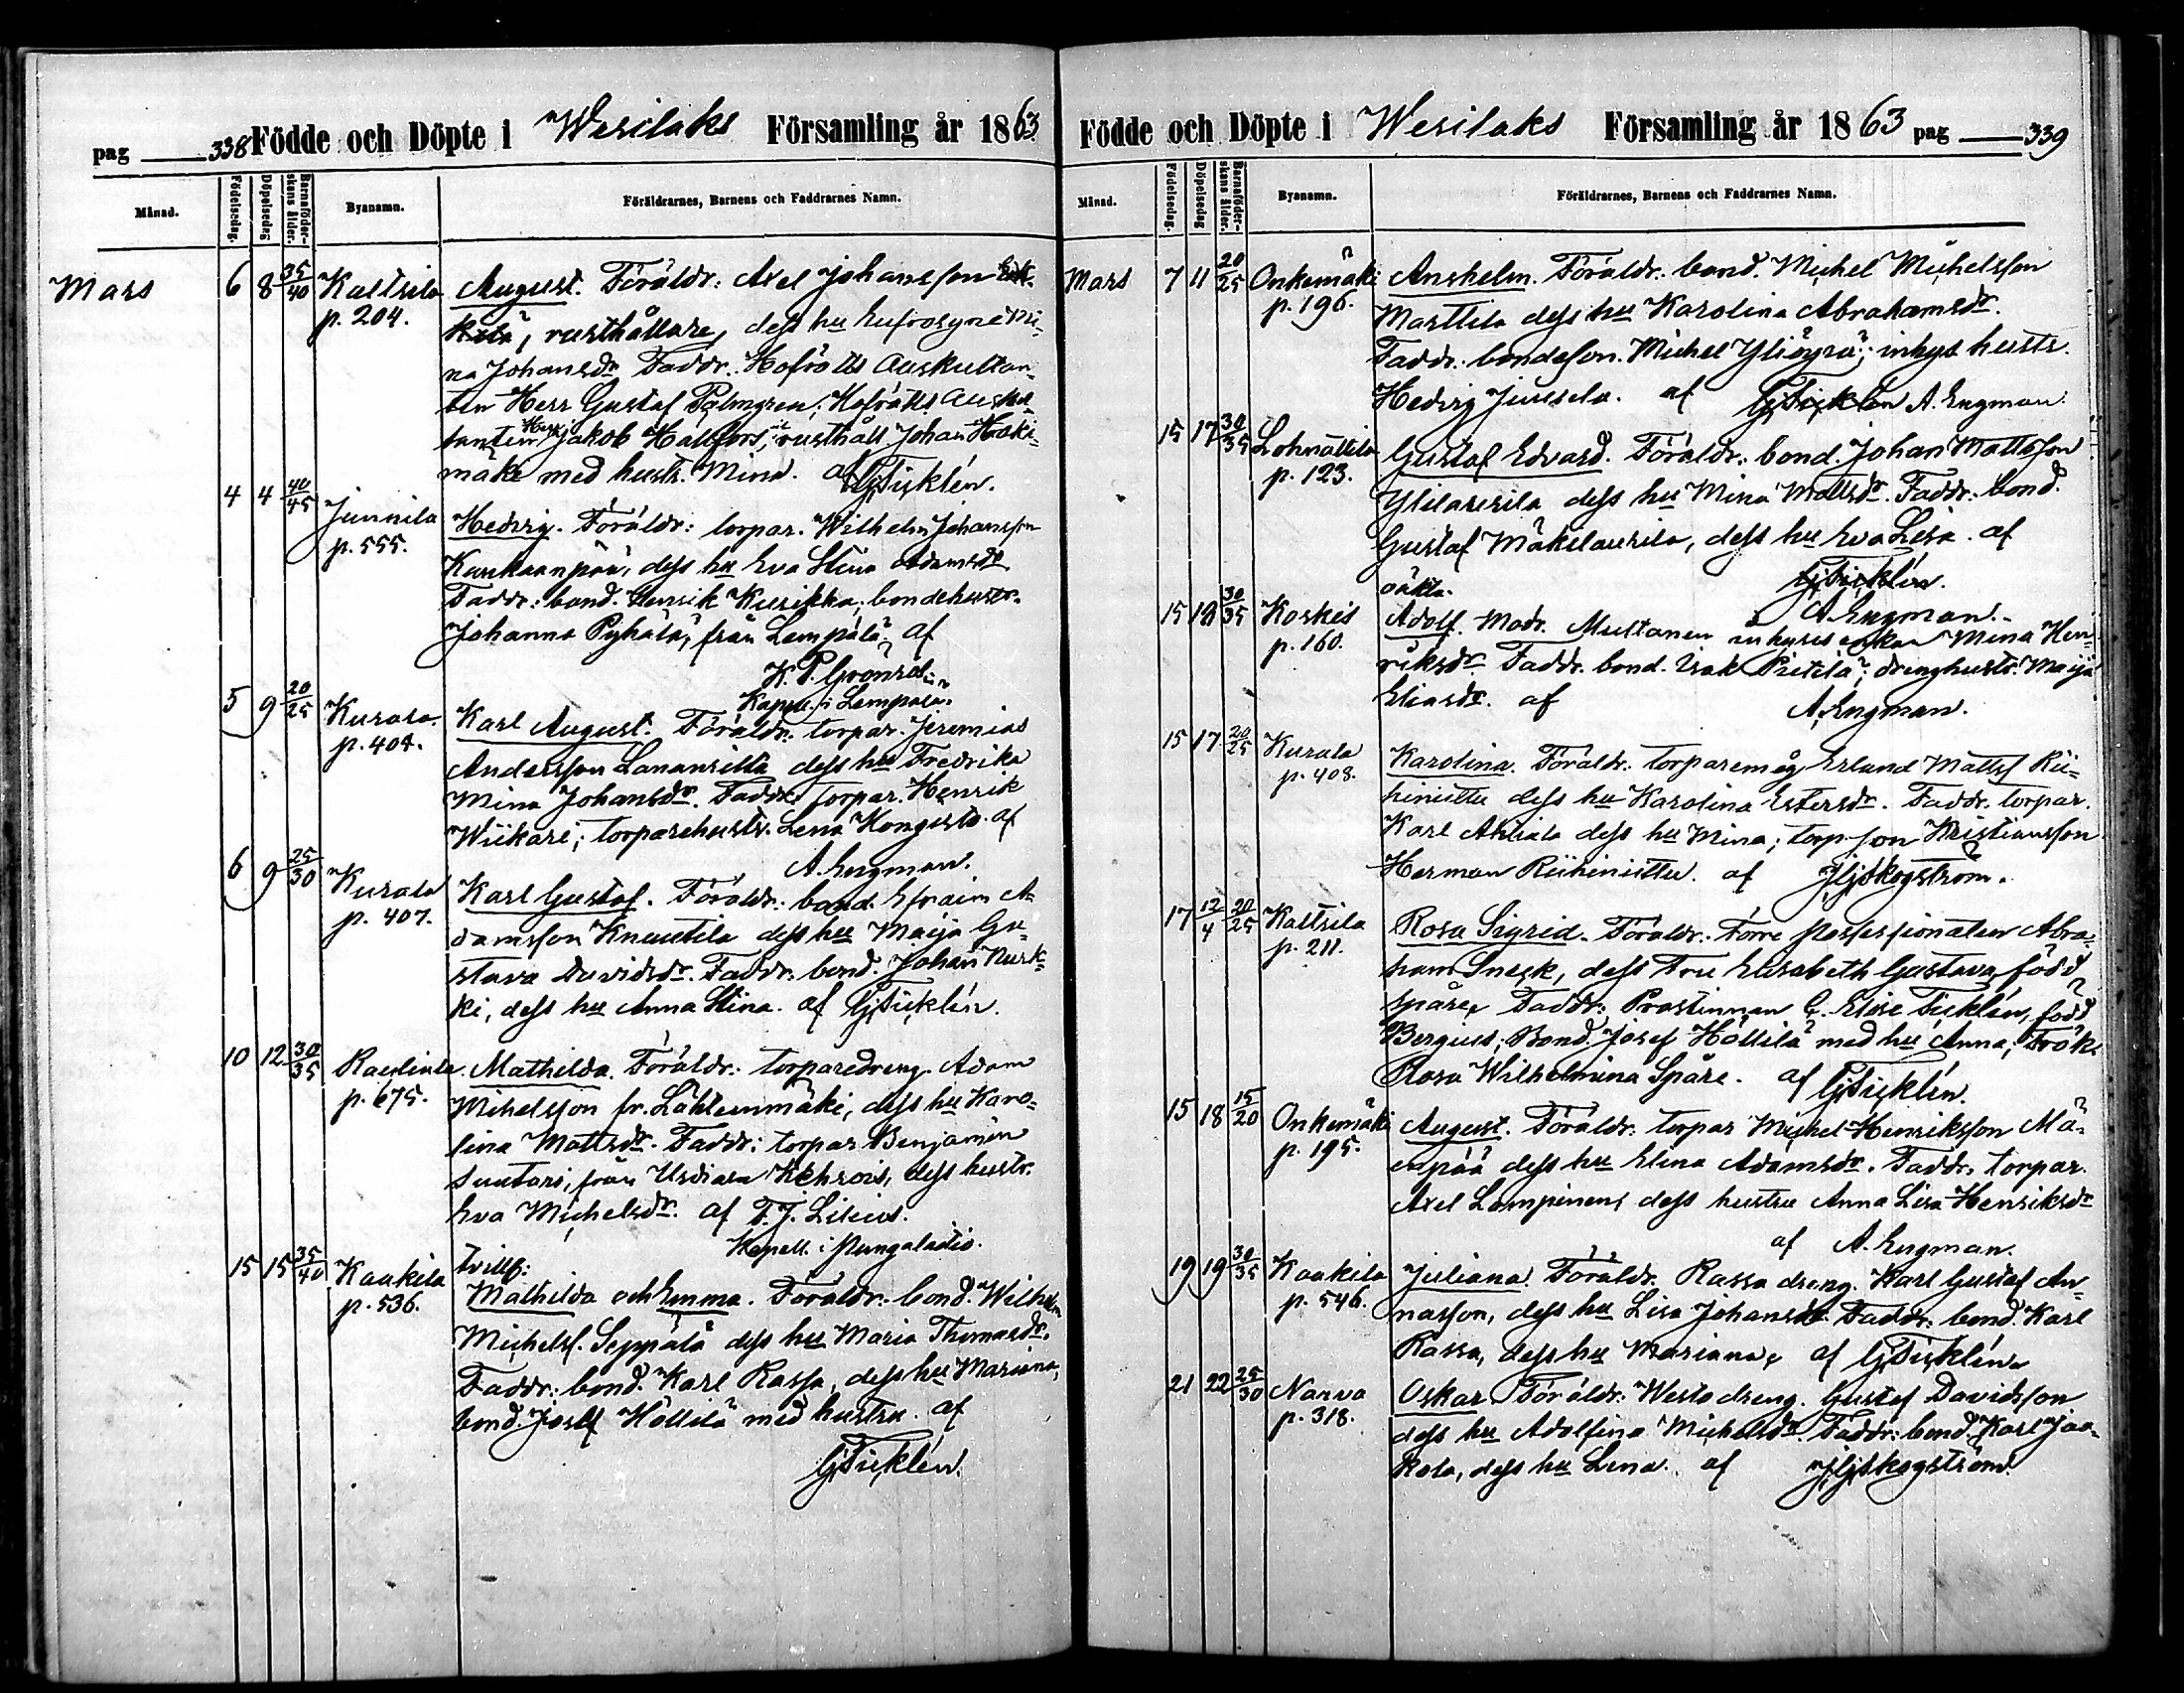 pag 338 Födde och Döpte i Wesilaks Församling år 1863
Månad. Födelsedag. Döpelsedag Barnaföderskans ålder. Byanamn. Föräldrarnes, Barnens och Faddrarnes Namn.
Mars 6 8 35/40 Kaltsila August. Föräldr: Axel Johansson
p. 204. rusthållare, dess hu Eufrosyne Mi-
na Johansdr Faddr. Hofrätts Auskultan-
ten Herr Gustaf Palmgren; Hofrätts Auskul-
tanten Herr Jakob Hallfors; rusthåll Johan Haki-
mäki med hustr. Mina. af G Ticklén.
4 4 40/45 Junnila Hedvig. Föräldr: torpar. Wilhelm Johansson
p. 555. Kankaanpää, dess hu Eva Stina Adamsdr
Faddr: bond. Henrik Kurikka; bondehustr.
Johanna Pyhälä, från Lempälä. af
K. P.
Kapell. i Lempälä.
5 9 20/25 Kurala Karl August. Föräldr. torpar. Jeremias
p. 404. Andersson dess hu Fredrika
Mina Johansdr. Faddr. torpar. Henrik
Wiikari; torparehustr. Lena Kongisto. af
A. Engman.
6 9 25/30 Kurala Karl Gustaf. Föräldr: bond. Efraim A-
p. 407. damsson Knuutila dess hu Maija Gu-
stava Davidsdr. Faddr: bond. Johan Kurk-
ki, dess hu Anna Stina. af G Ticklén.
10 12 30/35 Rautiala. Mathilda. Föräldr: torparedreng Adam
p. 675. Mihelsson fr. Lähteenmäki, dess hu Karo-
lina Mattsdr. Faddr: torpar Benjamin
Suutari, från Urdiala Kehrois, dess hustr.
Eva Michelsdr. af F. J. Lilius.
Kapell. i Pungalaitio.
15 15 35/40 Kaakila tvill:
p. 536. Mathilda och Emma. Föräldr. bond. Wilhelm
Michelss. Seppälä dess hu Maria Thomasdr.
Faddr: bond. Karl Rassa, dess hu Mariana,
bond. Josef Höllilä med hustru. af
G Ticklén.
Födde och Döpte i Wesilaks Församling år 1863 pag 339
Månad. Födelsedag. Döpelsedag Barnaföderskans ålder. Byanamn. Föräldrarnes, Barnens och Faddrarnes Namn.
Mars 7 11 20/25 Onkemäki Anshelm. Föräldr: bond. Michel Michelsson
p. 196. Marttila dess hu Karolina Abrahamsdr.
Faddr. bondeson. Michel Yliöyrä; inhys hustr.
Hedvig Jussila. af G Ticklén A. Engman.
15 17 30/35 Lohnättilä Gustaf Edvard. Föräldr: bond. Johan Mattsson
p. 123. Ylilaurila dess hu Mina Mattsdr. Faddr: bond.
Gustaf Mäkelaurila, dess hu Eva Lisa. af
G Ticklén.
oäkta. A. Engman.
15 19 30/35 Koskis Adolf. Modr. Multanen inhyses enkan Mina Hen-
p. 160. riksdr. Faddr. bond. Isak Pietilä; drenghustr. Maija
Eliasdr. af A. Engman.
15 17 20/25 Kurala Karolina. Föräldr: torparemåg Erland Mattss Rii-
p. 408. hiniittu dess hu Karolina Estersdr. Faddr. torpar.
Karl Ahtiala dess hu Mina; torp-son Kristiansson
Herman Riihiniittu. af J G Skogström.
17 12/4 20/25 Kaltsila Rosa Sigrid. Föräldr. Förre Possessionaten Abra-
p. 211. ham Sneck, dess Fru Elisabeth Gustava, född
Spåre, Faddr: Prostinnan C. Elise Ticklén, född
Bergius; Bond. Josef Höllilä med hu Anna; Frök.
Rosa Wilhelmina Spåre. af G Ticklén.
15 18 15/20 Onkemäki August. Föräldr: torpar Michel Henriksson Mä-
p. 195. enpää dess hu Elena Adamsdr. Faddr. torpar.
Axel Lampinen, dess hustru Anna Lisa Henriksdr
af A. Engman.
19 19 30/35 Kaakila Juliana. Föräldr. Rassa dreng. Karl Gustaf An-
p. 546. nasson, dess hu Lisa Johansdr. Faddr: bond. Karl
Rassa, dess hu Mariana, af G Ticklén.
21 22 25/30 Narva Oskar. Föräldr: Westo dreng. Gustaf Davidsson
p. 318. dess hu Adolfina Michelsdr. Faddr: bond. Karl Jaa-
kola, dess hu Lena. af J G Skogström.